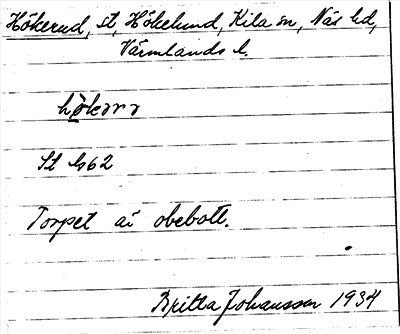 Hökerud, st, Hökelund, Kila sn, Näs hd,
Värmlands l.
St bl 62
Torpet är obebott.
Britta Johansson 1934